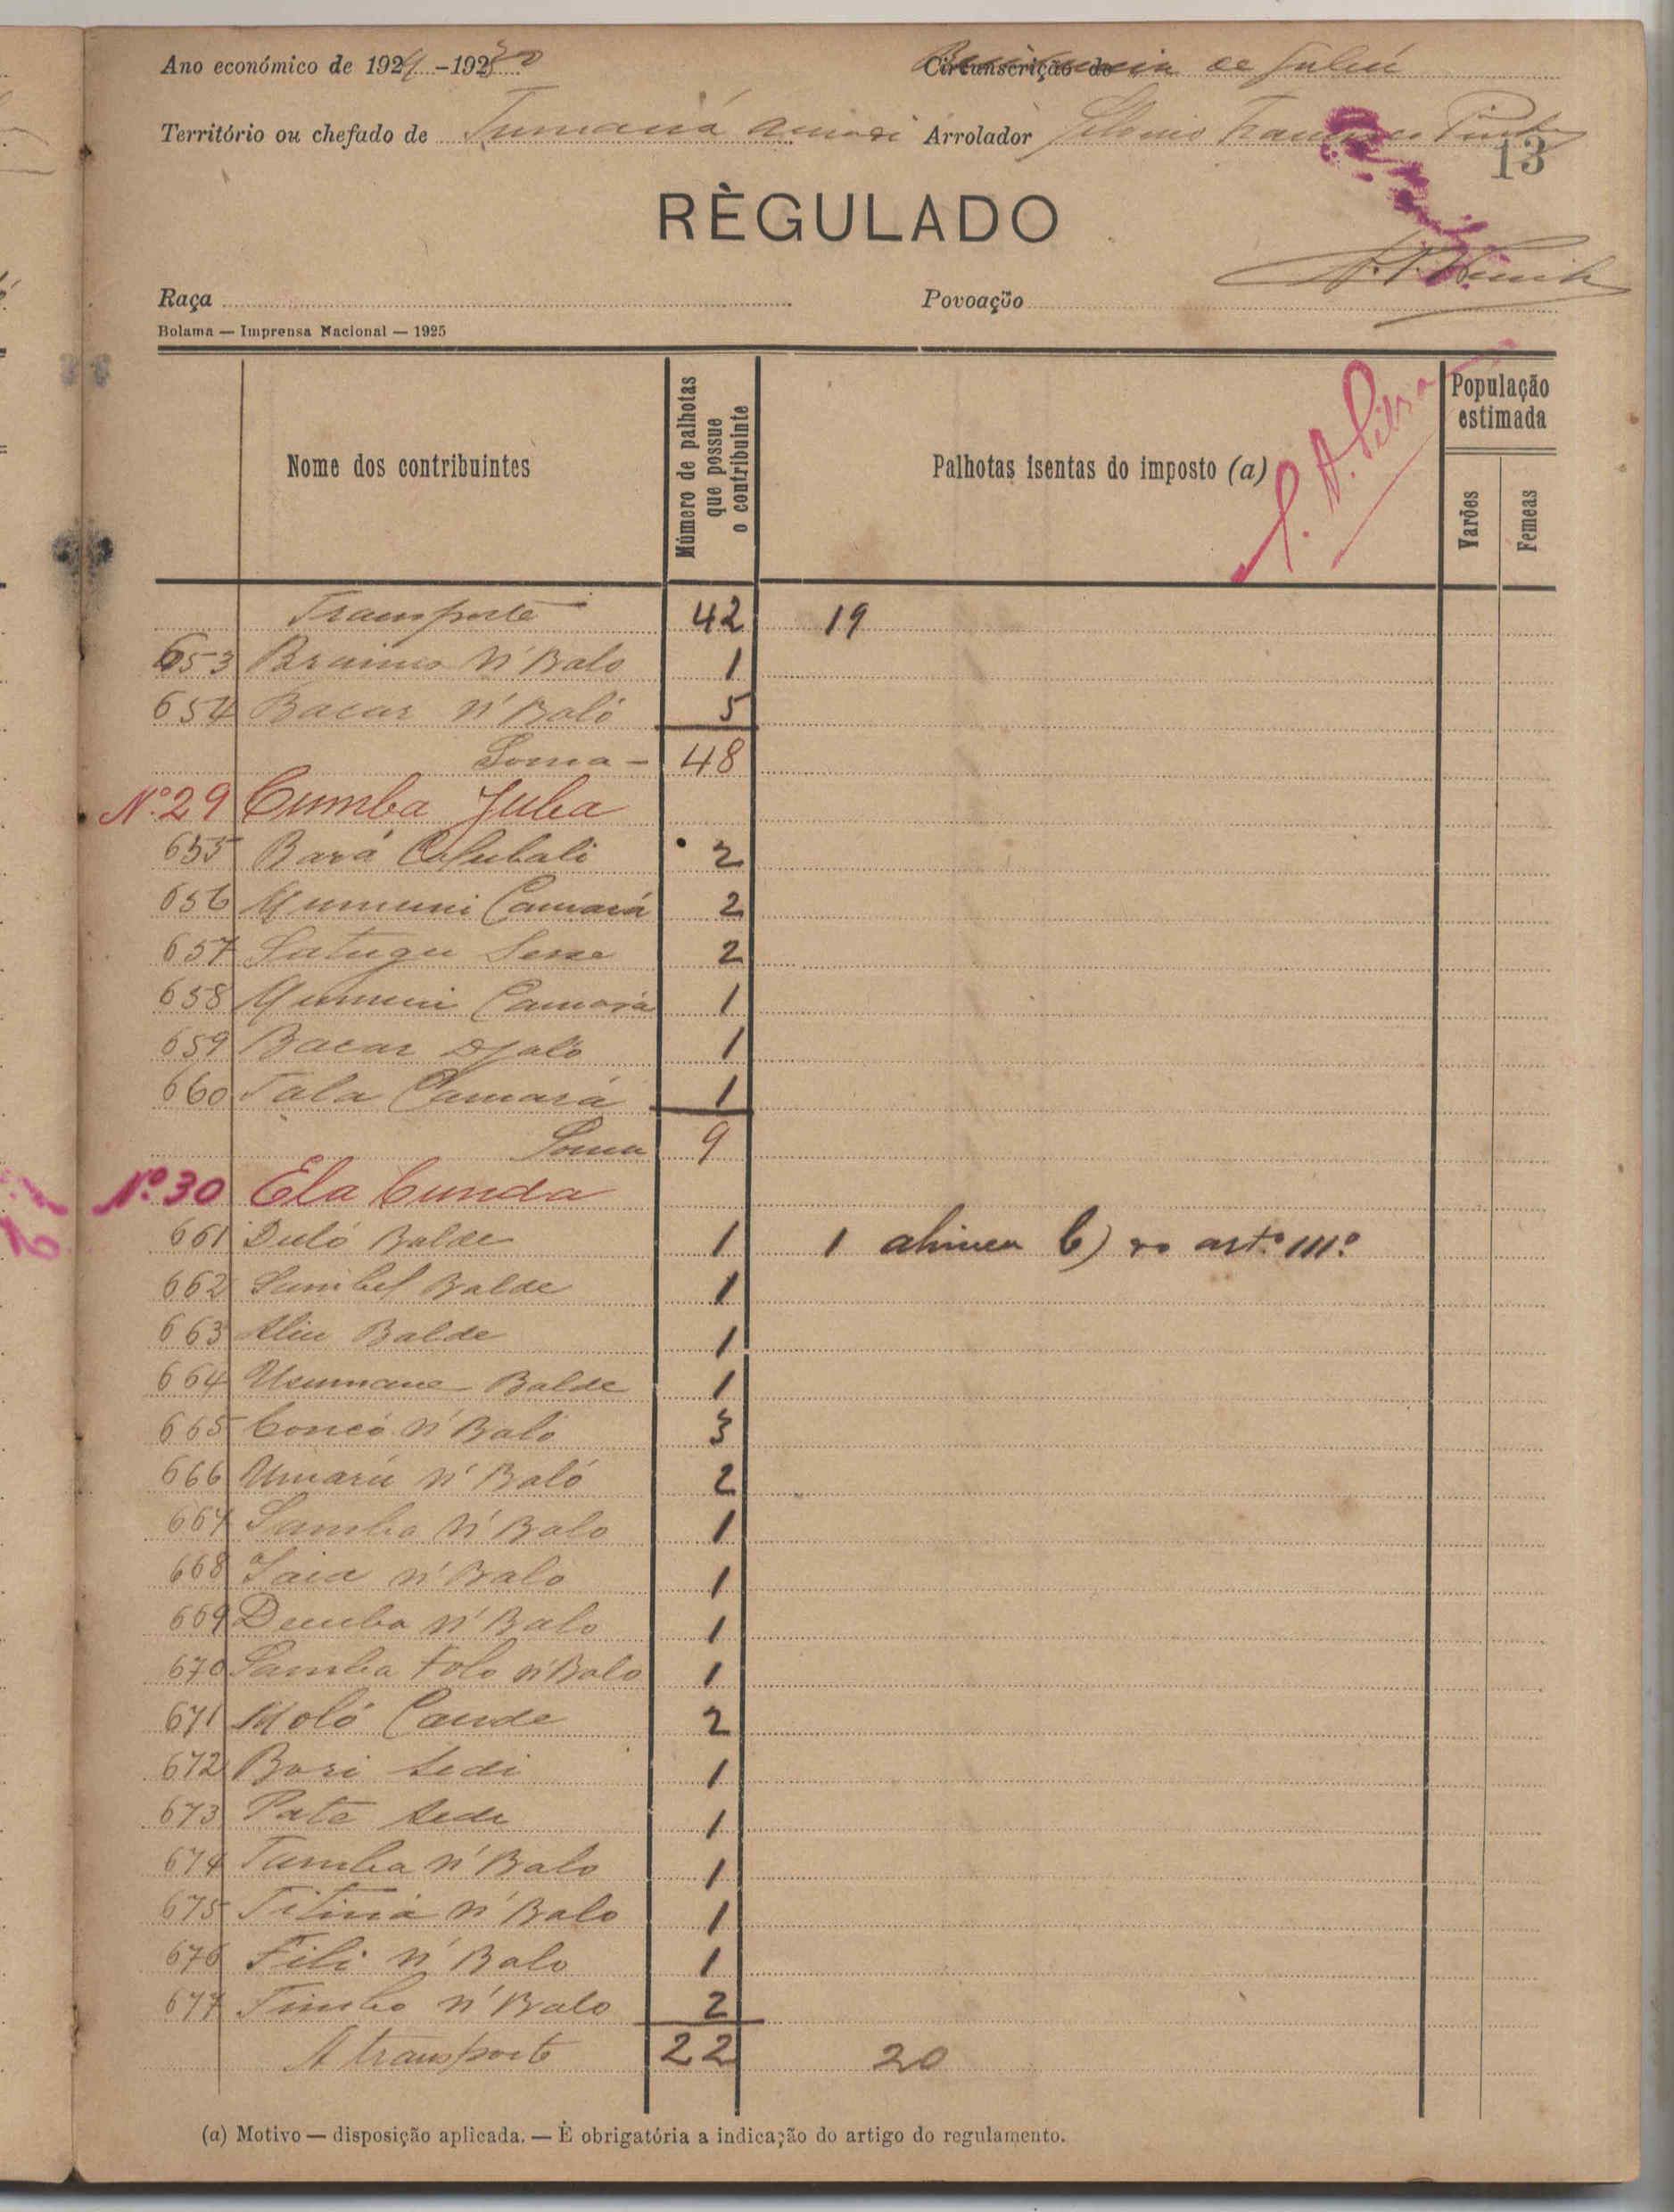 Ano económico de 1929-1930
Circunscrição de
Território ou chefado de Tumaná
Arrolador Francisco
13
RÈGULADO
Raça
Povoação
Bolama — Imprensa Nacional — 1925
Nome dos contribuintes
Número de palhotas que possue o contribuinte
Palhotas isentas do imposto (a)
População estimada
Varões
Femeas
Transporte 42 19
653 Braima N'Balo 1
654 Bacar N'Baló 5
Soma - 48
Nº 29 Cumba Juba
655 Bará 2
656 Mumuni Camará 2
657 2
658 Mumuni Camará 1
659 Bacar Djaló 1
660 Tala Camará 1
Soma 9
Nº 30 Ela Cunda
661 Duló Balde 1 1 alinea b) do artº 111º
662 Balde 1
663 Aliu Balde 1
664 Usumane Balde 1
665 Concó N'Baló 3
666 Umarú N'Baló 2
667 Samba N'Balo 1
668 N'Balo 1
669 Demba N'Balo 1
670 Samba Folo N'Balo 1
671 Moló Cande 2
672 Bori 1
673 Pate 1
674 Tamba N'Balo 1
675 N'Balo 1
676 Fili N'Balo 1
677 Timbo N'Balo 2
A transporte 22 20
(a) Motivo — disposição aplicada. — È obrigatória a indicação do artigo do regulamento.